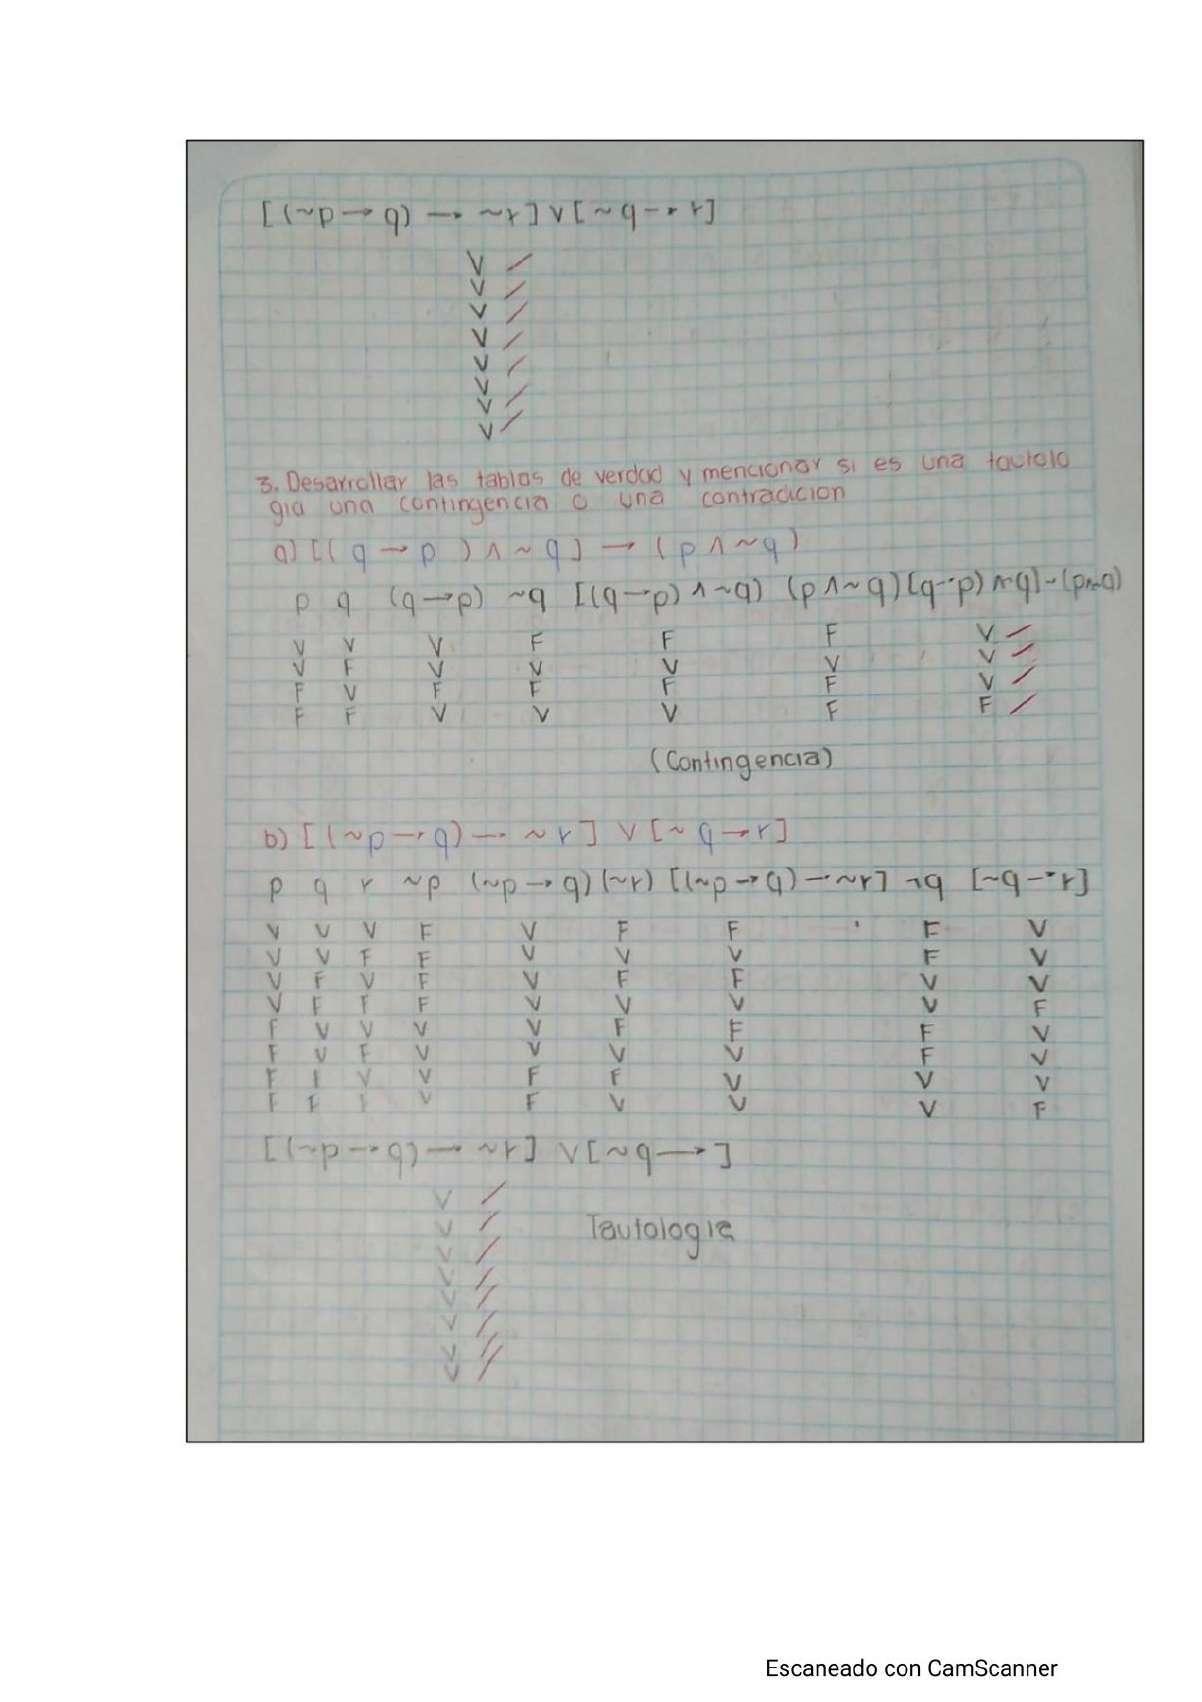 [(~p → q) ↔ ~r] ∨ [~q → r]
V
V
V
V
V
V
V
V
3. Desarrollar las tablas de verdad y mencionar si es una tautolo
gia una contingencia o una contradicion
a) [(p → q) ∧ ~q] → (p ∨ ~q)
p q (p → q) ~q [(p → q) ∧ ~q] (p ∨ ~q)
V V V F F F V
V F V V V V V
F V F F F F V
F F V V V F F
(Contingencia)
b) [(~p → q) ↔ ~r] ∨ [~q → r]
p q r ~p (~p → q) (~r) [(~p → q) ↔ ~r] ~q [~q → r]
V V V F V F F F V
V V F F V V V F V
V F V F V F F V V
V F F F V V V V F
F V V V V F F F V
F V F V V V V F V
F F V V F F V V V
F F F V F V V V F
[(~p → q) ↔ ~r] ∨ [~q →]
V
V
Tautologia
V
V
V
V
V
V
Escaneado con CamScanner